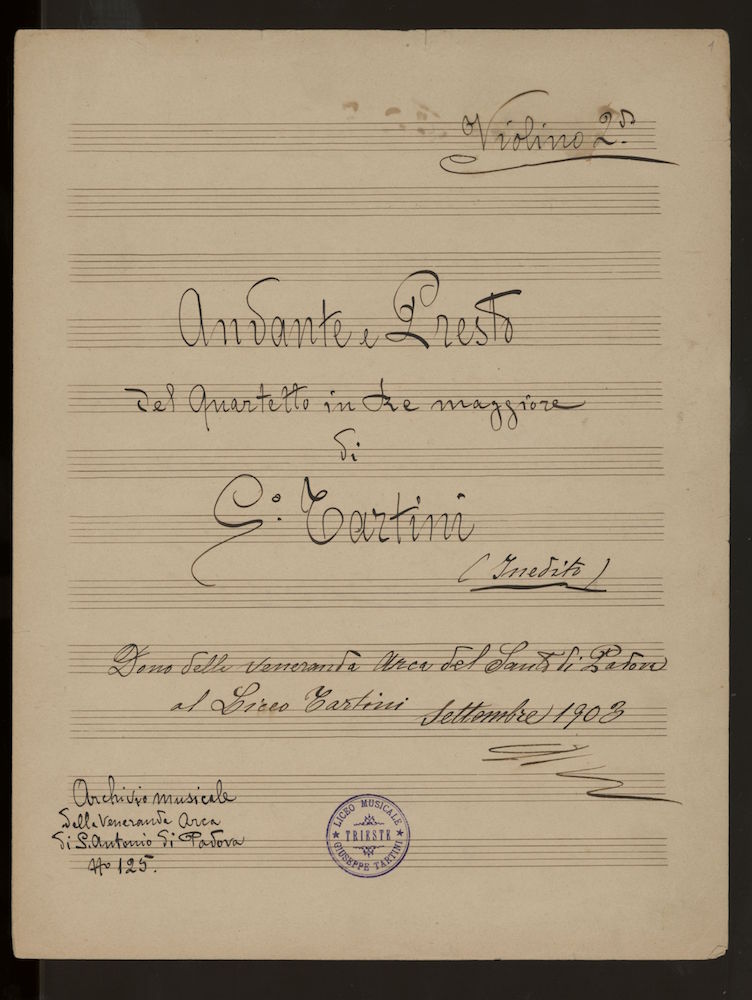 1
Violino 2.do
Andante e Presto
del Quartetto in Re maggiore
di
G. Tartini
(Inedito)
Dono della Veneranda Arca del Santo di Padova
al Liceo Tartini Settembre 1903
Archivio musicale
della Veneranda Arca
di S. Antonio di Padova
No 125.
LICEO MUSICALE
TRIESTE
GIUSEPPE TARTINI